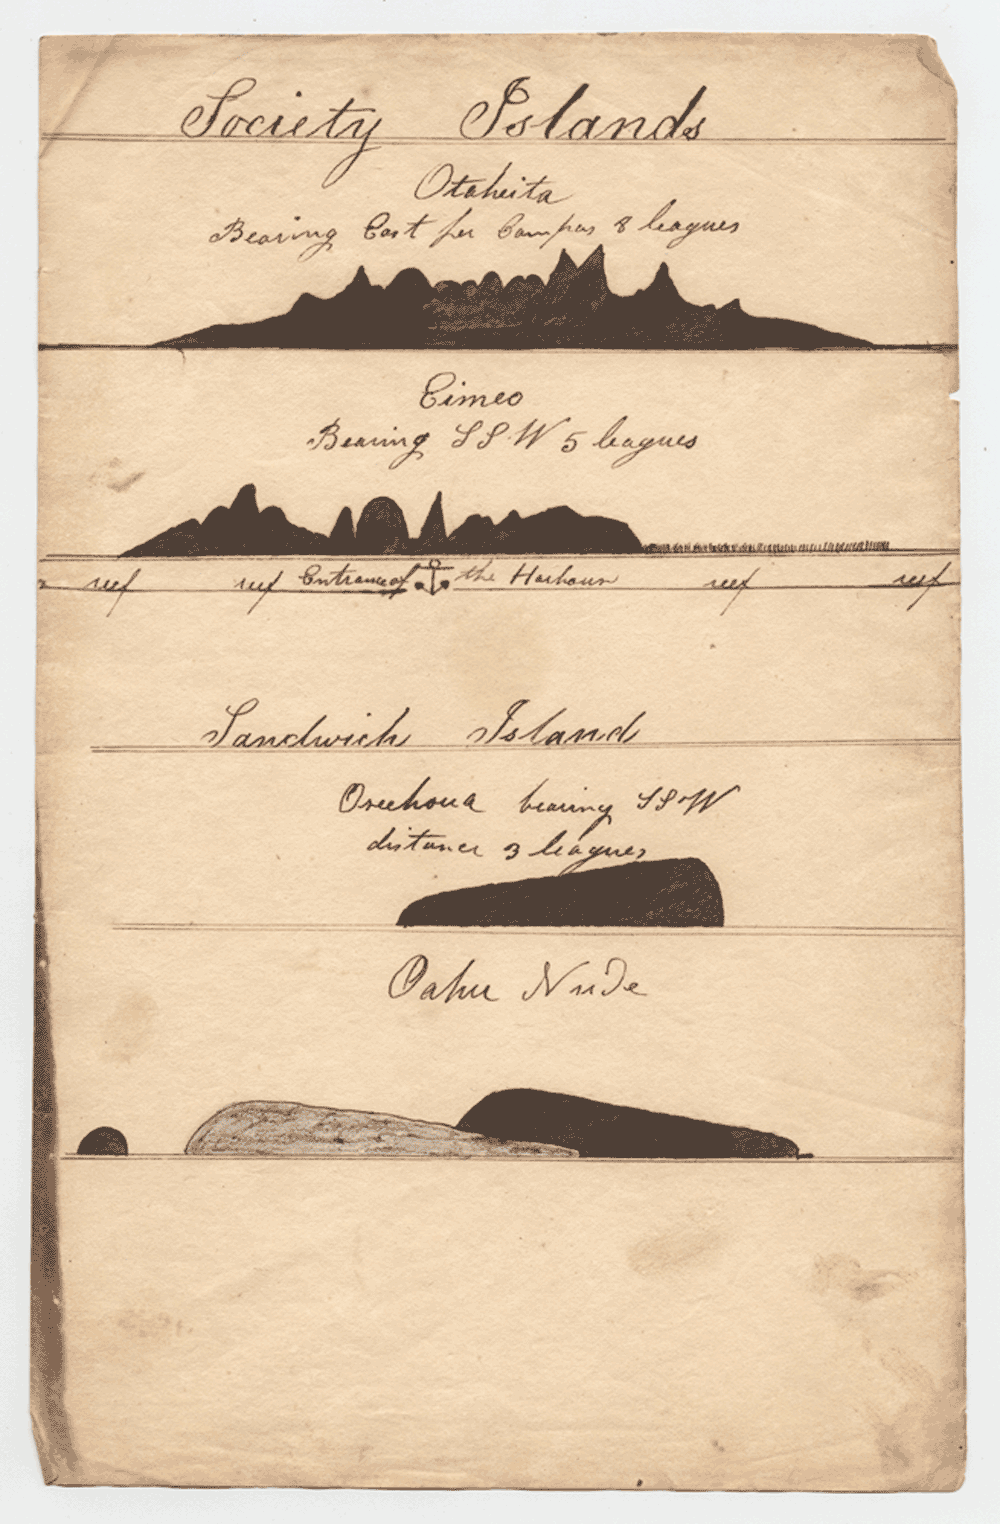 Society Islands
Otaheita
Bearing East per Compas 8 leagues
Eimeo
Bearing SSW 5 leagues
reef reef Entrance of the Harbour reef reef
Sandwich Island
Oreehoua bearing SSW
distance 3 leagues
Oahu